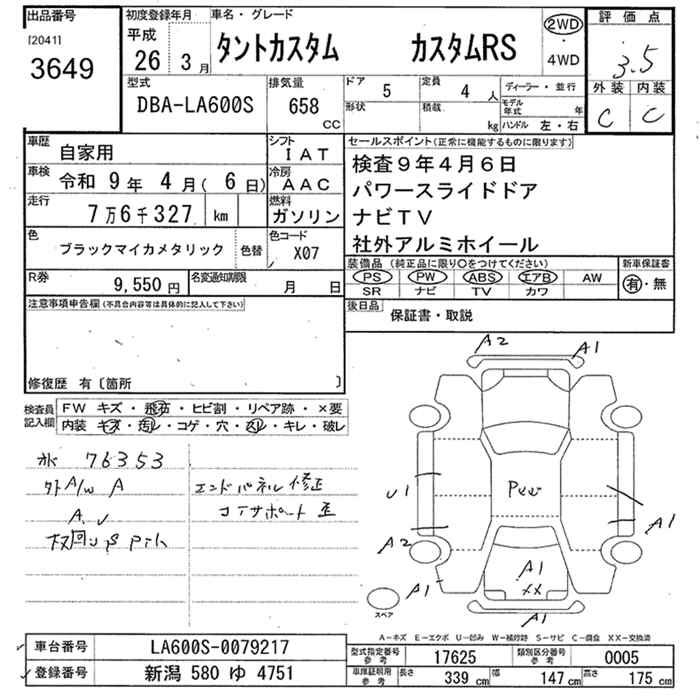 出品番号
[2041]
3649
初度登録年月
平成
26 3 月
車名・グレード
タントカスタム カスタムRS
2WD
・
4WD
評価点
3.5
外装 内装
C C
型式
DBA-LA600S
排気量
658
CC
ドア 5
形状
定員 4 人
積載 kg
ディーラー・並行
モデル年式 年
ハンドル 左・右
車歴
自家用
シフト
IAT
車検
令和 9 年 4 月( 6 日)
冷房
AAC
走行
7万6千327 km
燃料
ガソリン
色
ブラックマイカメタリック
色替
色コード
X07
R券
9,550 円
名変通知期限
月 日
セールスポイント(正常に機能するものに限ります)
検査9年4月6日
パワースライドドア
ナビTV
社外アルミホイール
装備品(純正品に限り○をつけてください)
PS PW ABS エアB AW
SR ナビ TV カワ
新車保証書
有・無
後日品
保証書・取説
注意事項申告欄(不具合内容等は具体的に記入して下さい)
修復歴 有〔箇所 〕
検査員記入欄
FW キズ・飛石・ヒビ割・リペア跡・×要
内装 キズ・汚レ・コゲ・穴・凹レ・キレ・破レ
76353
外A/W A
A U
エンドパネル修正
コアサポート歪
A2
A1
U1
A2
A1
A1
A1
XX
A1
スペア
A-キズ E-エクボ U-凹み W-補修跡 S-サビ C-腐食 XX-交換済
車台番号
LA600S-0079217
登録番号
新潟 580 ゆ 4751
型式指定番号
参考
17625
類別区分番号
参考
0005
車庫証明用
参考
長さ 339 cm
幅 147 cm
高さ 175 cm